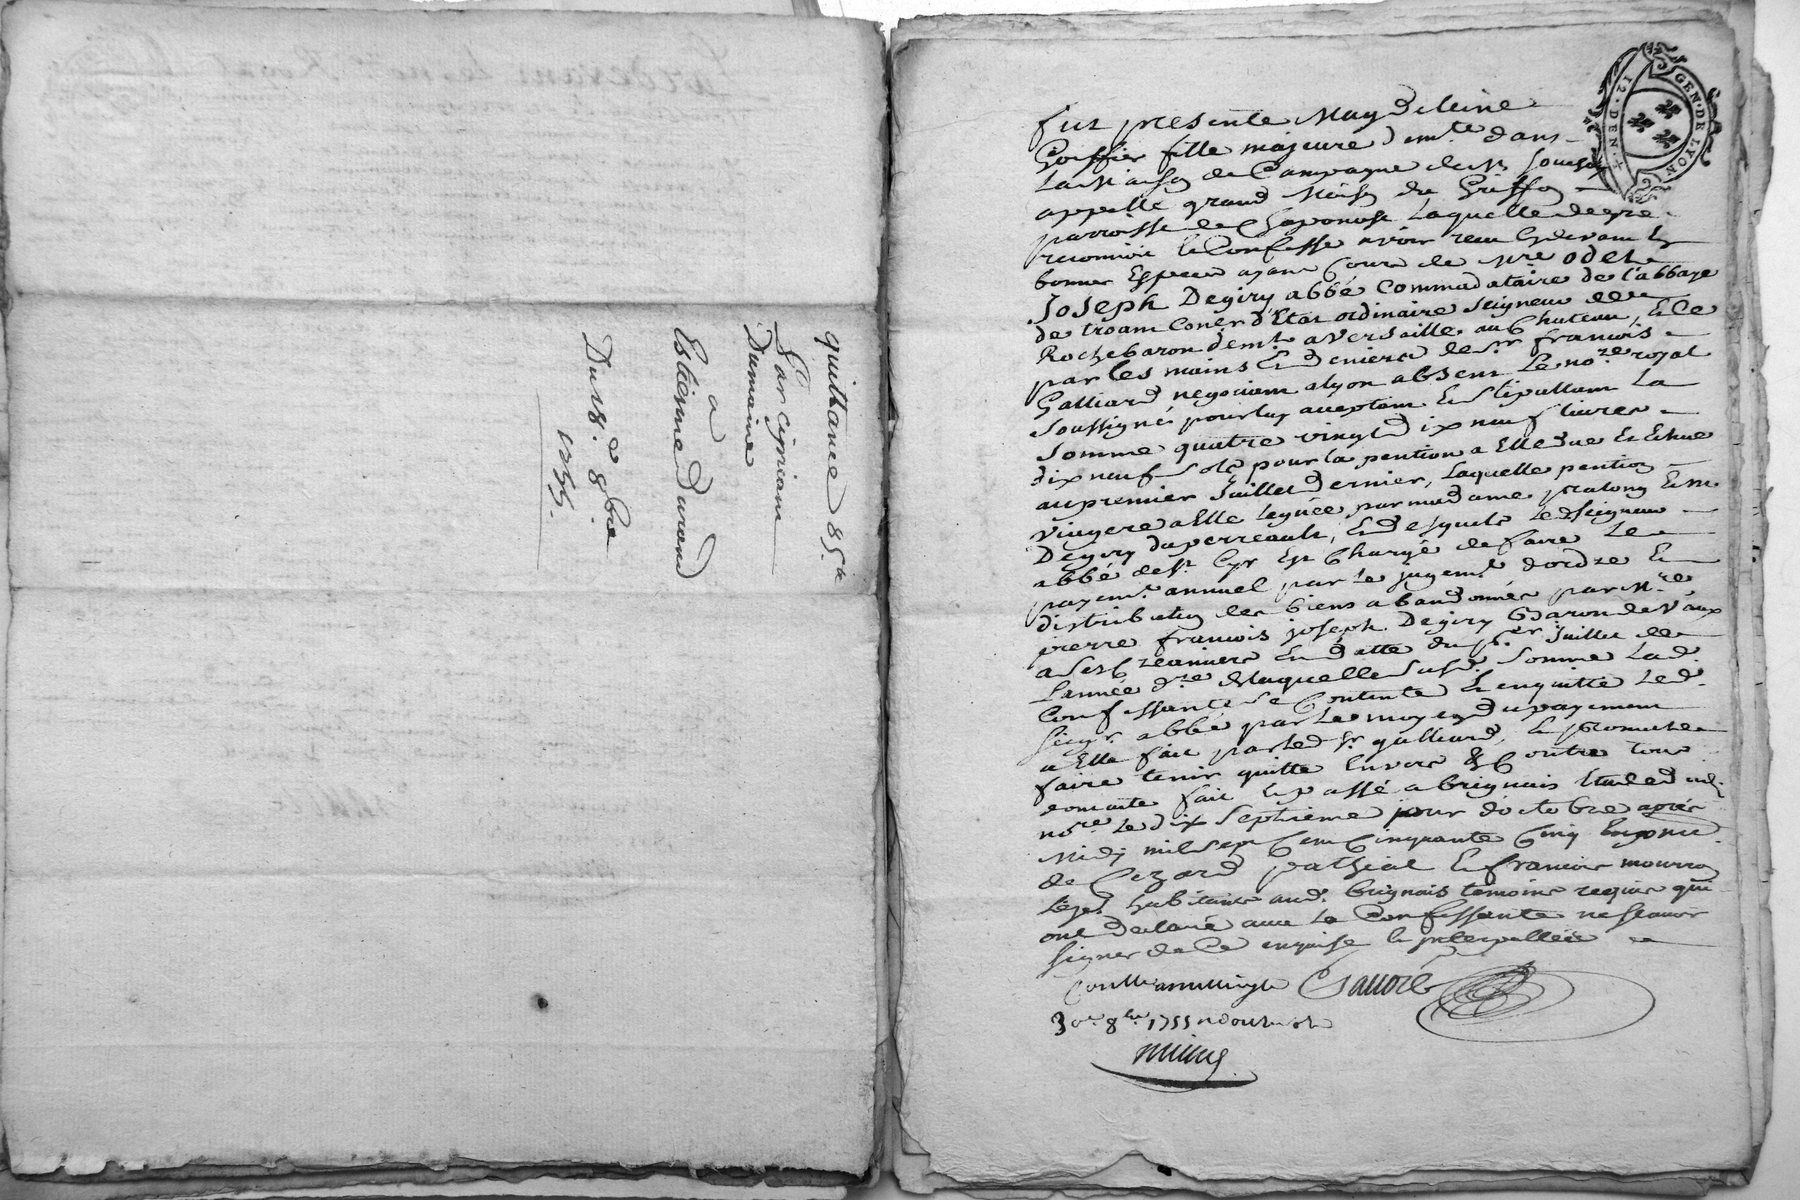 quittance 85#
Par cipriam
Dumaine
a
Estienne Durand
Du 18e. 8bre
1755.
GEN·DE LYON
12·DEN·
fut presente Magdeleine
Goiffier fille majeure demte dans
La Maison de Campagne de Sr
appellé grand Maison du Griffon
parroisse de Chaponost Laquelle de gré
reconnoit et Confesse avoir reçu cydevant En
bonnes Especes ayant Cours de Mre Odet
Joseph Degiry abbé Commadataire de l'abbaye
de troam Coner d'Etat ordinaire Seigneur de
Rochebaron demt a Versaille au Chateau, Et Ce
par les mains Et deniers de Sr francois
Galliard negociant alyon absent Le nore royal
Soussigné pour luy acceptant Et Stipullant La
Somme quatre vingt dix neuf livres
dix neuf Sols pour la pention a Elle due Et Echue
au premier Juillet dernier, Laquelle pention
viagere a Elle Leguée par madame pralong Et M.
Degiry duperreault, Et desquels Le dt Seigneur
abbé de St Cyr Est Chargé de faire Le
payemt annuel par Le jugemt dordre Et
distribution des biens abandonnés par Mre
pierre francois joseph Degiry Baron de Vaux
a Ses Creanciers En datte du Juillet de
Lannée dre De Laquelle Susd. Somme Lad.
Confessante Se Contente Et enquitte Led.
Seigr. abbé par Le moyen du payement
a Elle fait par led Sr galliard, Et promet Le
faire tenir quitte Envers Et Contre tous
dont acte fait Et passé a brignais Etude dud.
nore Le dix Septieme jour doctobre après
Midy mil sept Cent Cinquante Cinq En presence
de Cezard pathial Et francois mourron
Leger habitants aud. brignais temoins requis qui
ont declaré avec La Confessante ne Scavoir
Signer de Ce enquise Et interpellée
3 8bre 1755